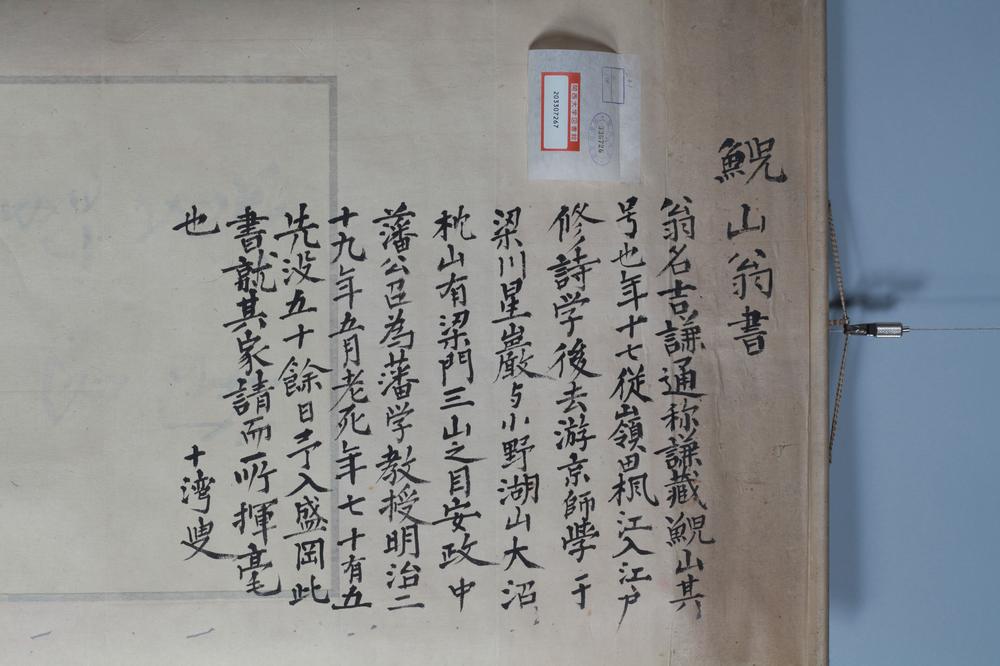 鯢山翁書
翁名吉謙通称謙藏鯢山其
号也年十七從嶺田楓江入江戸
修詩学後去游京師学于
梁川星巌与小野湖山大沼
枕山有梁門三山之目安政中
藩公召為藩学教授明治二
十九年五月老死年七十有五
先没五十餘日予入盛岡此
書就其家請而所揮毫
也
十湾叟
関西大学図書館
203307267